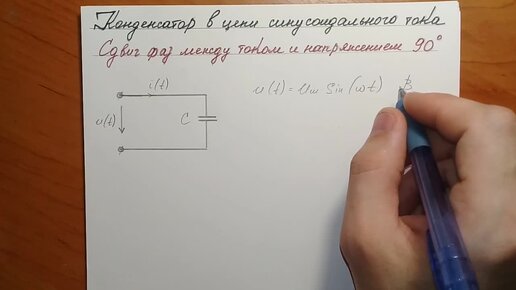 Конденсатор в цепи синусоидального тока
Сдвиг фаз между током и напряжением 90°
i(t)
u(t) = Um Sin(ωt) В
u(t)
C